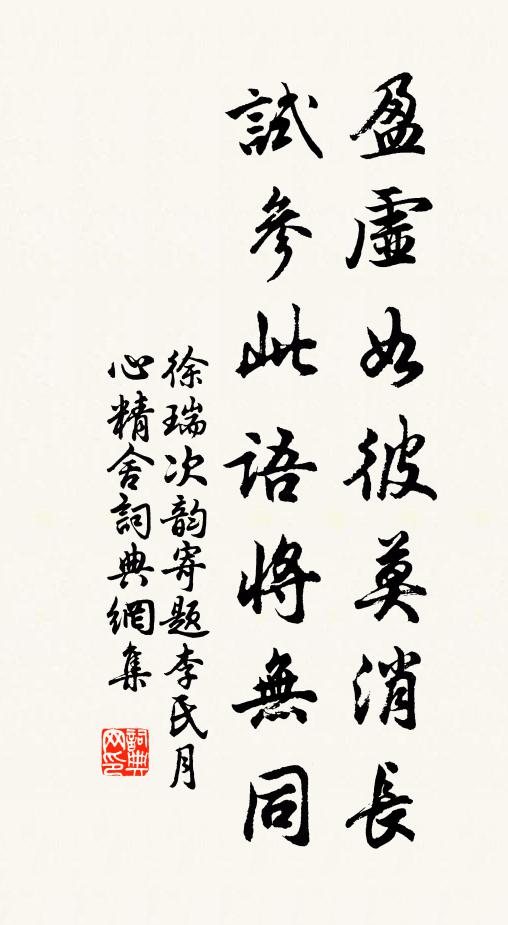 盈虛如彼莫消長
試參此語將無同
徐瑞次韵寄题李氏月
心精舍詞典網集
詞典网印